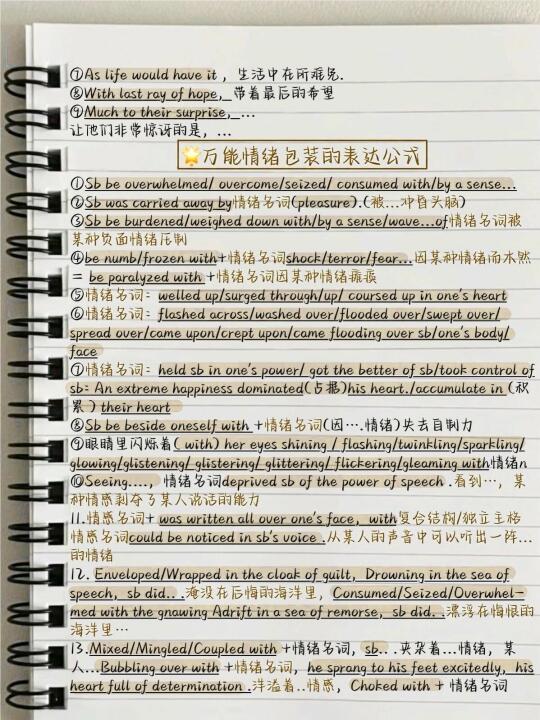 ①As life would have it ，生活中在所难免.
⑧With last ray of hope, 带着最后的希望
⑨Much to their surprise, ...
让他们非常惊讶的是，...
🌟万能情绪包装的表达公式
①Sb be overwhelmed/ overcome/seized/ consumed with/by a sense...
②Sb was carried away by情绪名词(pleasure).(被...冲昏头脑)
③Sb be burdened/weighed down with/by a sense/wave...of情绪名词被
某种负面情绪压制
④be numb/frozen with+情绪名词shock/terror/fear...因某种情绪而木然
= be paralyzed with +情绪名词因某种情绪瘫痪
⑤情绪名词：welled up/surged through/up/ coursed up in one's heart
⑥情绪名词：flashed across/washed over/flooded over/swept over/
spread over/came upon/crept upon/came flooding over sb/one's body/
face
⑦情绪名词：held sb in one's power/ got the better of sb/took control of
sb: An extreme happiness dominated(占据)his heart./accumulate in (积
累) their heart
⑧Sb be beside oneself with +情绪名词(因....情绪)失去自制力
⑨眼睛里闪烁着( with) her eyes shining / flashing/twinkling/sparkling/
glowing/glistening/ glistering/ glittering/ flickering/gleaming with情绪n
⑩Seeing...., 情绪名词deprived sb of the power of speech .看到…，某
种情感剥夺了某人说话的能力
11.情感名词+ was written all over one's face, with复合结构/独立主格
情感名词could be noticed in sb's voice .从某人的声音中可以听出一阵...
的情绪
12. Enveloped/Wrapped in the cloak of guilt, Drowning in the sea of
speech, sb did.. .淹没在后悔的海洋里，Consumed/Seized/Overwhel-
med with the gnawing Adrift in a sea of remorse, sb did. .漂浮在悔恨的
海洋里…
13.Mixed/Mingled/Coupled with +情绪名词，sb.. .夹杂着...情绪，某
人...Bubbling over with +情绪名词，he sprang to his feet excitedly, his
heart full of determination .洋溢着..情感，Choked with + 情绪名词